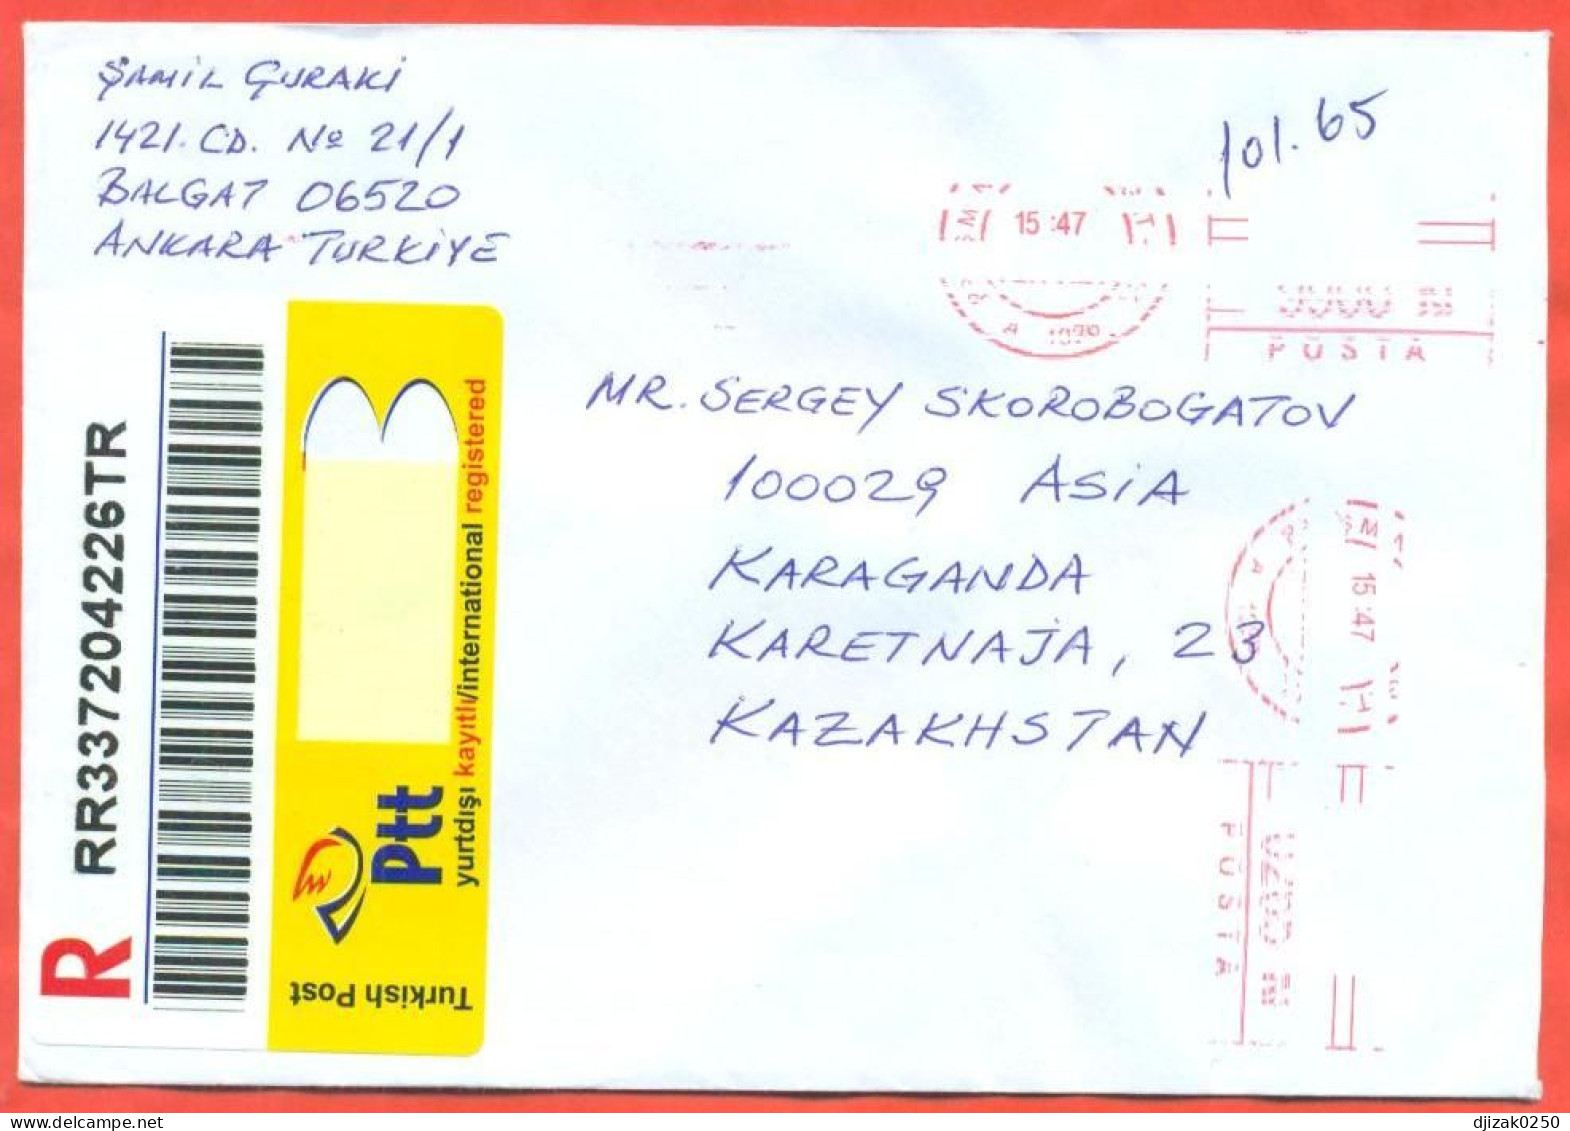 ŞAMİL ÇURAKİ
1421. CD. Nº 21/1
BALGAT 06520
ANKARA TURKİYE
101.65
15:47
POSTA
MR. SERGEY SKOROBOGATOV
100029 ASİA
KARAGANDA
KARETNAJA, 23
KAZAKHSTAN
15:47
POSTA
R
RR337204226TR
yurtdışı kayıtlı/international registered
Ptt
Turkish Post
djizak0250